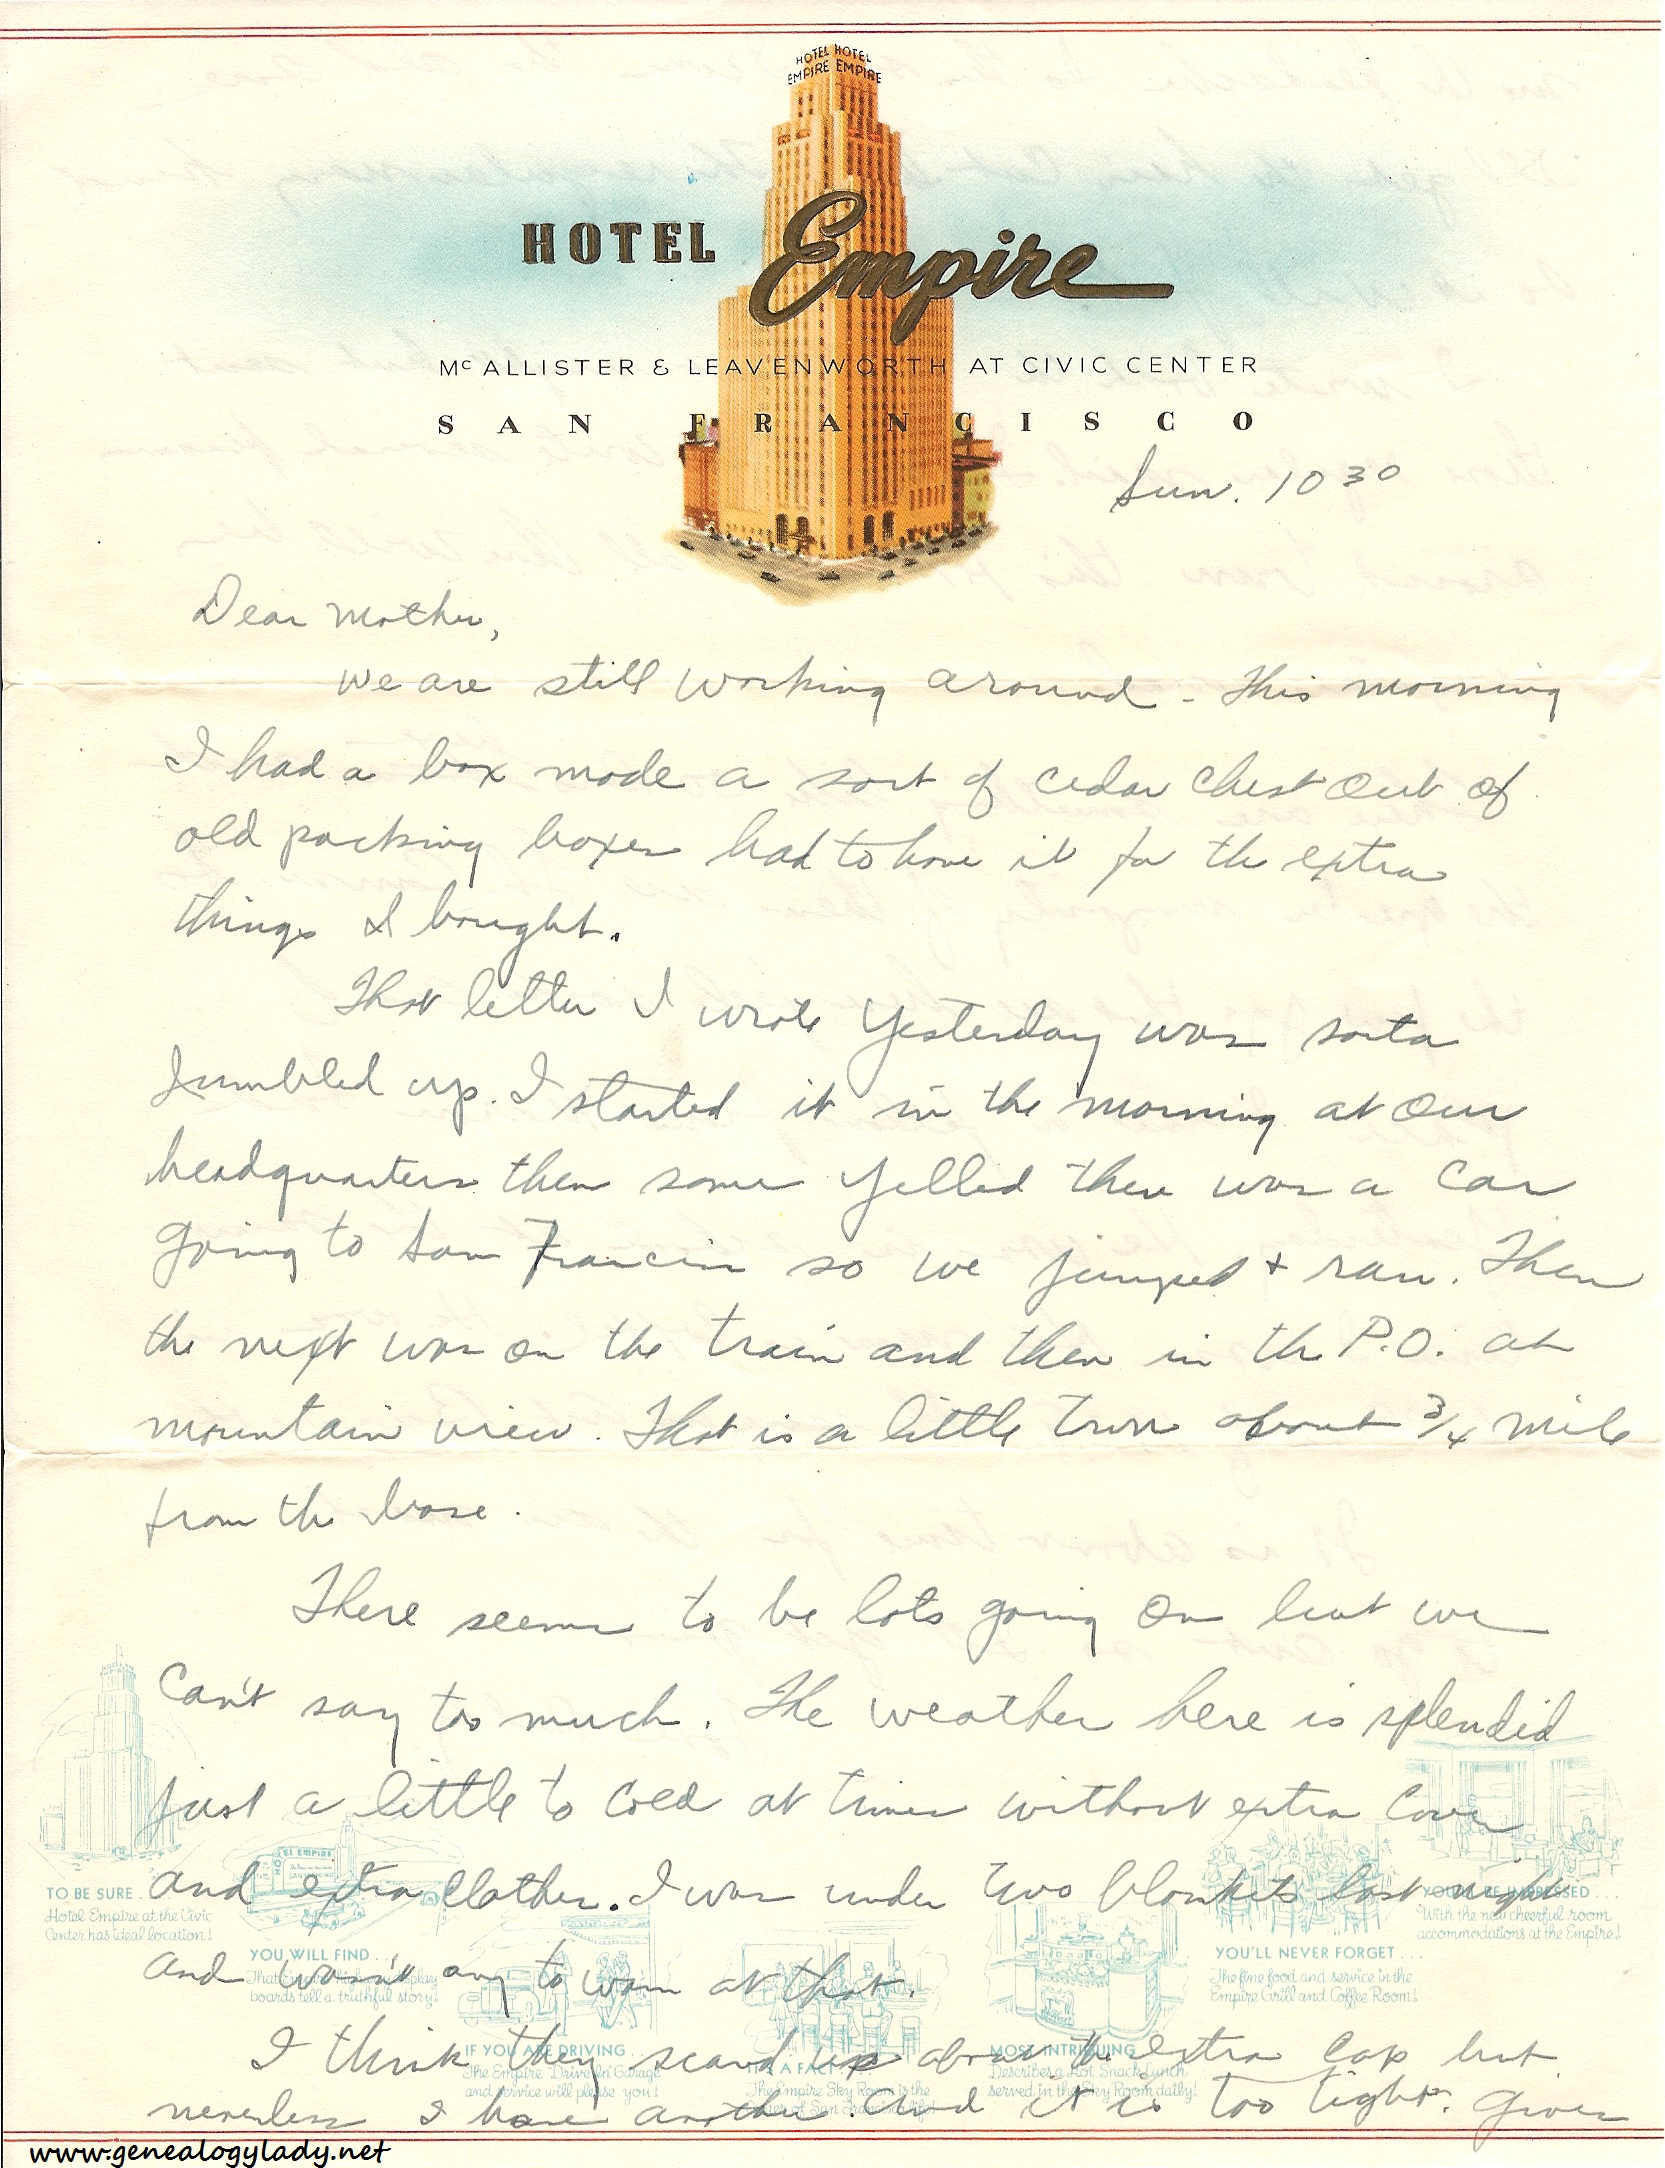 HOTEL HOTEL
EMPIRE EMPIRE
HOTEL Empire
McALLISTER & LEAVENWORTH AT CIVIC CENTER
SAN FRANCISCO
Sun. 10 30
Dear Mother,
We are still working around - This morning
I had a box made a sort of cedar chest out of
old packing boxes had to have it for the extra
things I bought.
That letter I wrote yesterday was sorta
jumbled up. I started it in the morning at our
headquarters then some yelled there was a car
going to San Francisco so we jumped + ran. Then
the next was on the train and then in the P.O. at
mountain view. That is a little town about 3/4 mile
from the base.
There seems to be lots going on but we
can't say too much. The weather here is splendid
just a little to cold at times without extra cover
and extra clothes. I was under two blankets last night
and wasn't any to warm at that.
I think they scared up about the extra cap but
neverless I have another. And it is too tight. Gives
TO BE SURE...
Hotel Empire at the Civic
Center has ideal location!
HOTEL EMPIRE
YOU WILL FIND...
That Empire's display
boards tell a truthful story!
IF YOU ARE DRIVING...
The Empire "Drive In" Garage
and service will please you!
IT'S A FACT...
The Empire Sky Room is the
center of San Francisco life!
MOST INTRIGUING
Describes a Hot Snack Lunch
served in the Sky Room daily!
YOU'LL NEVER FORGET...
The fine food and service in the
Empire Grill and Coffee Room!
YOU'LL BE IMPRESSED...
With the new cheerful room
accommodations at the Empire!
www.genealogylady.net